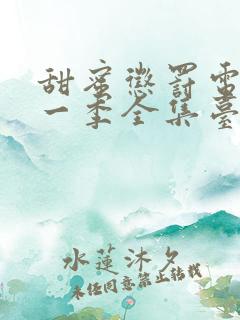 甜蜜懲罰電
一季全集臺
水蓮沐夕
未经同意禁止转载